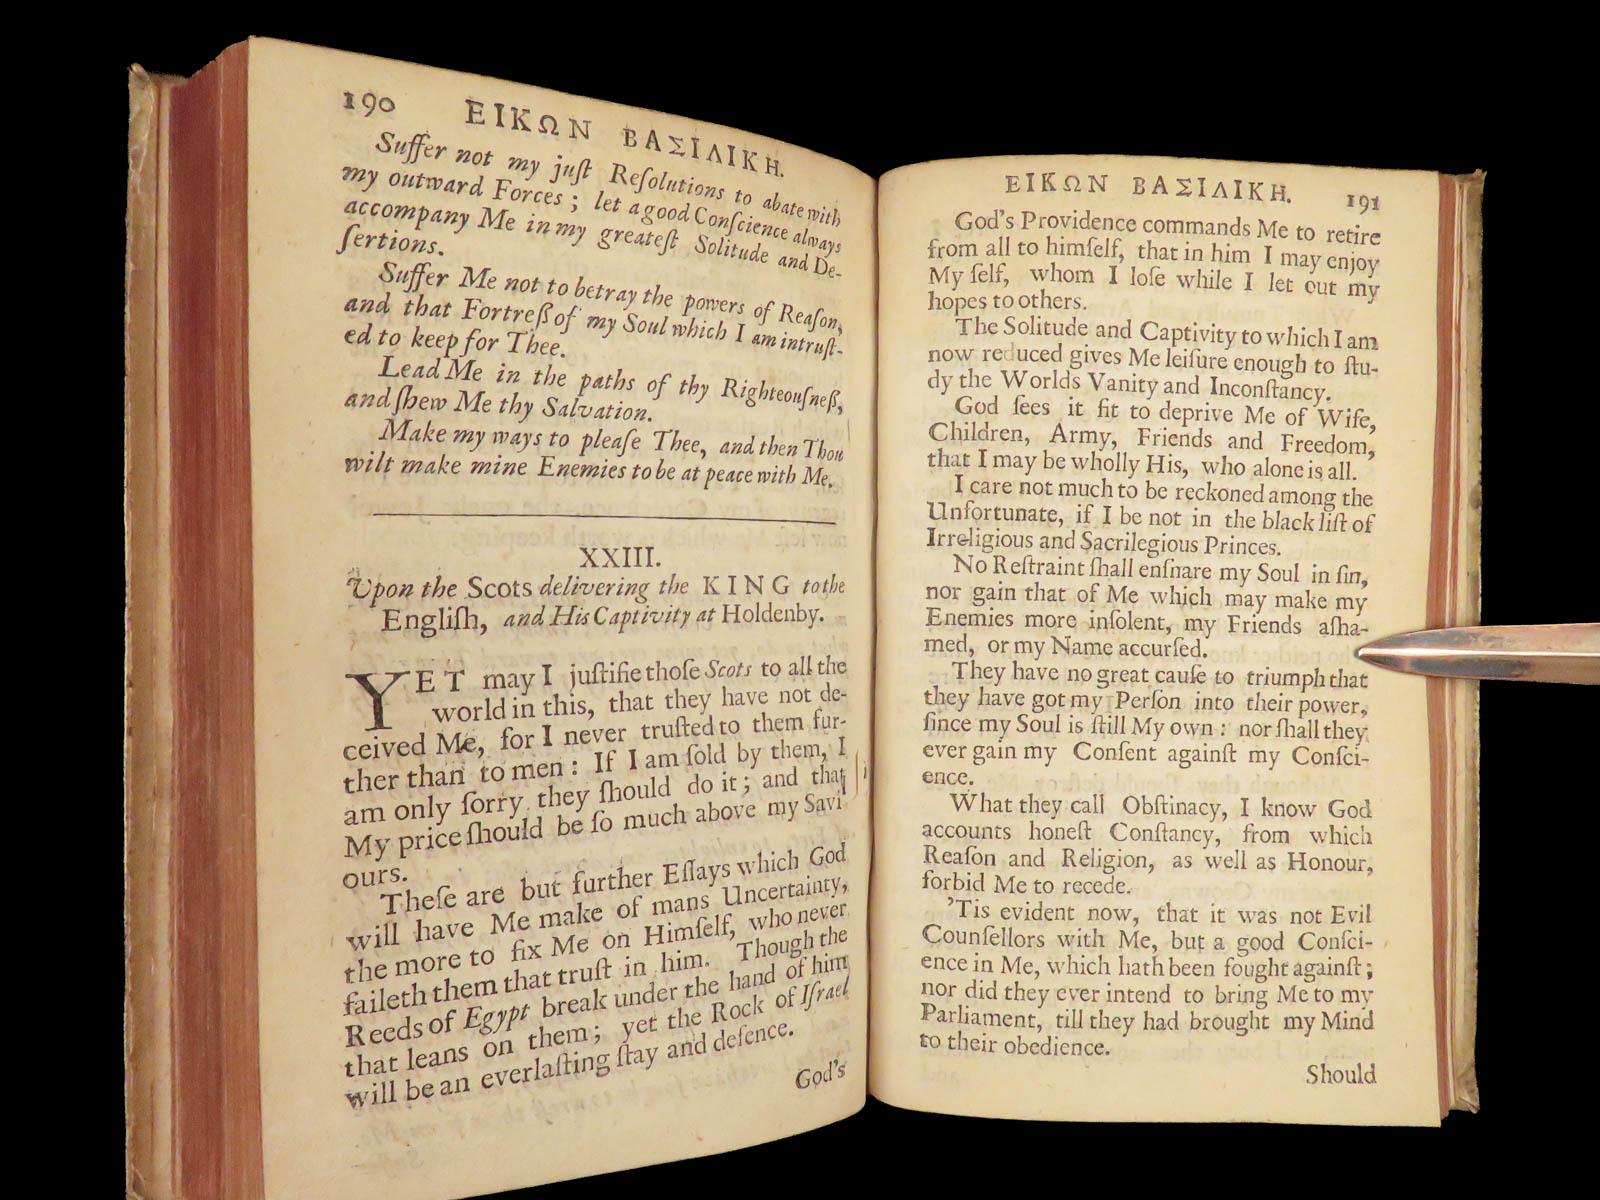 190 ΕΙΚΩΝ ΒΑΣΙΛΙΚΗ.
Suffer not my juſt Reſolutions to abate with
my outward Forces; let a good Conſcience always
accompany Me in my greateſt Solitude and De-
ſertions.
Suffer Me not to betray the powers of Reaſon,
and that Fortreß of my Soul which I am intruſt-
ed to keep for Thee.
Lead Me in the paths of thy Righteouſneß,
and ſhew Me thy Salvation.
Make my ways to pleaſe Thee, and then Thou
wilt make mine Enemies to be at peace with Me.
XXIII.
Upon the Scots delivering the KING to the
Engliſh, and His Captivity at Holdenby.
YET may I juſtifie thoſe Scots to all the
world in this, that they have not de-
ceived Me, for I never truſted to them fur-
ther than to men: If I am ſold by them, I
am only ſorry they ſhould do it; and that
My price ſhould be ſo much above my Savi
ours.
Theſe are but further Eſſays which God
will have Me make of mans Uncertainty,
the more to fix Me on Himſelf, who never
faileth them that truſt in him. Though the
Reeds of Egypt break under the hand of him
that leans on them; yet the Rock of Iſrael
will be an everlaſting ſtay and defence.
God's
ΕΙΚΩΝ ΒΑΣΙΛΙΚΗ. 191
God's Providence commands Me to retire
from all to himſelf, that in him I may enjoy
My ſelf, whom I loſe while I let out my
hopes to others.
The Solitude and Captivity to which I am
now reduced gives Me leiſure enough to ſtu-
dy the Worlds Vanity and Inconſtancy.
God ſees it fit to deprive Me of Wife,
Children, Army, Friends and Freedom,
that I may be wholly His, who alone is all.
I care not much to be reckoned among the
Unfortunate, if I be not in the black liſt of
Irreligious and Sacrilegious Princes.
No Reſtraint ſhall enſnare my Soul in ſin,
nor gain that of Me which may make my
Enemies more inſolent, my Friends aſha-
med, or my Name accurſed.
They have no great cauſe to triumph that
they have got my Perſon into their power,
ſince my Soul is ſtill My own: nor ſhall they
ever gain my Conſent againſt my Conſci-
ence.
What they call Obſtinacy, I know God
accounts honeſt Conſtancy, from which
Reaſon and Religion, as well as Honour,
forbid Me to recede.
'Tis evident now, that it was not Evil
Counſellors with Me, but a good Conſci-
ence in Me, which hath been fought againſt;
nor did they ever intend to bring Me to my
Parliament, till they had brought my Mind
to their obedience.
Should